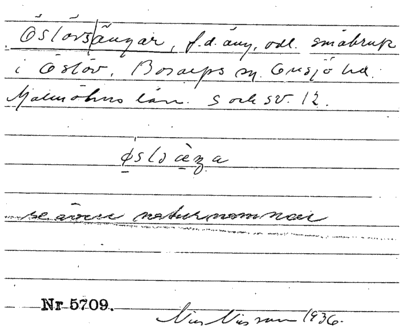 Öslövs|ängar, f.d. äng, odl. småbruk
i Öslöv, Bosarps sn. Onsjö hd.
Malmöhus län. S och SV. 12.
øslöäŋa
se även naturnamnen
Nr 5709.
Nils Nilsson 1936.